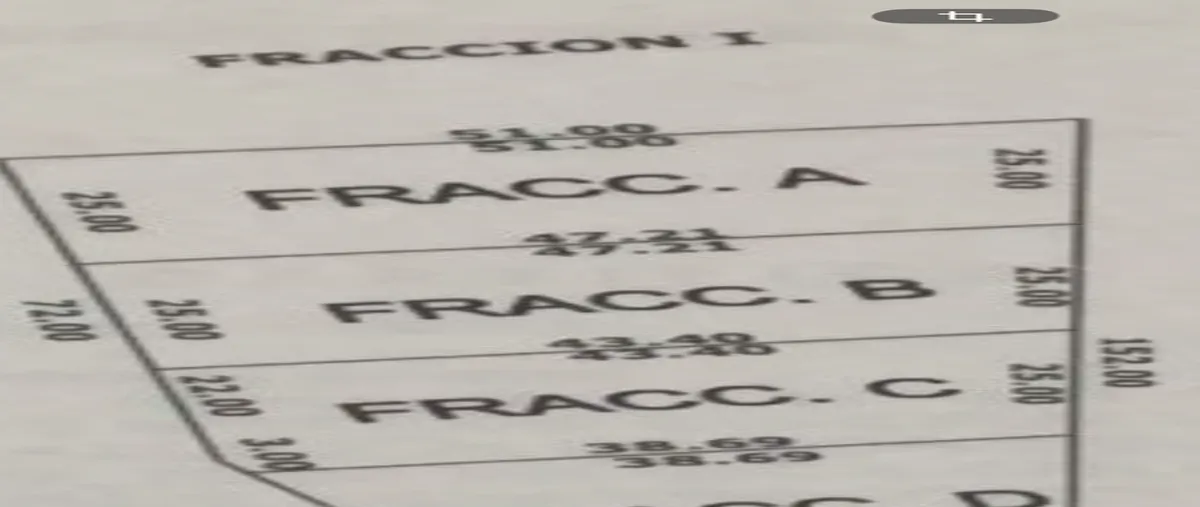 FRACCION I
51.00
51.00
25.00
FRACC. A
25.00
47.21
47.21
72.00
25.00
FRACC. B
25.00
43.40
43.40
152.00
22.00
FRACC. C
25.00
3.00
38.69
38.69
FRACC. D